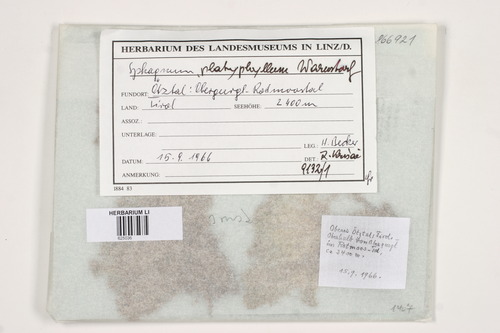 166921
HERBARIUM DES LANDESMUSEUMS IN LINZ/D.
Sphagnum platyphyllum Warnstorf
FUNDORT: Ötztal: Obergurgl. Rotmoostal
LAND: Tirol SEEHÖHE: 2400 m
ASSOZ.:
UNTERLAGE:
LEG.: H. Becker
DATUM: 15.9.1966 DET.: R. Krisai
ANMERKUNG: 9132/1
1884 83
HERBARIUM LI
Oberes Ötztal, Tirol.
Oberhalb von Obergurgl
im Rotmoos-Tal,
ca 2400 m.
15.9.1966.